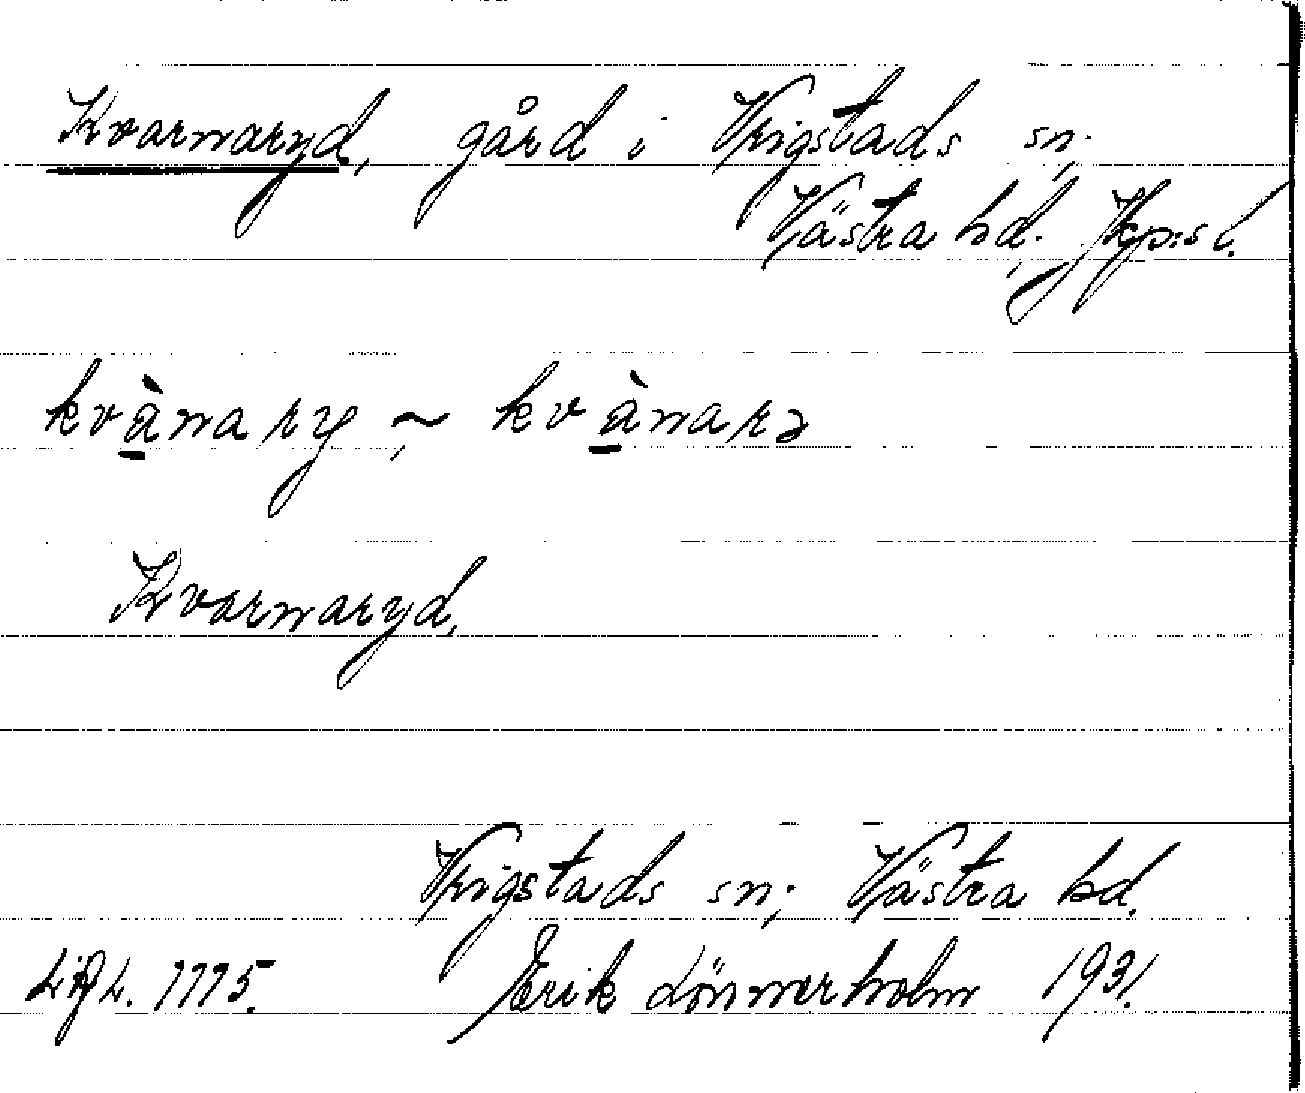 Kvarnaryd, gård i Vrigstads sn;
Västra hd. Jkp:s l.
kvànary, ~ kvànarə
Kvarnaryd,
Vrigstads sn; Västra hd.
1775. Erik Lönnerholm 1931.